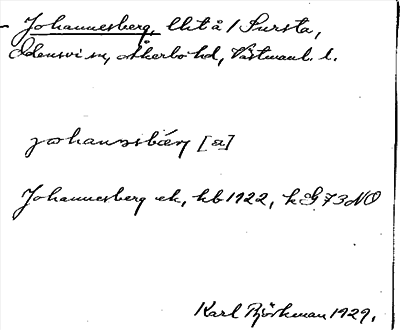 Johannesberg, lht å / Sursta,
Odensvi sn, Åkerbo hd, Västmanl. l.
johannsbærj [a]
Johannesberg ek, hb 1922, k G 73 NO
Karl Björkman 1929.